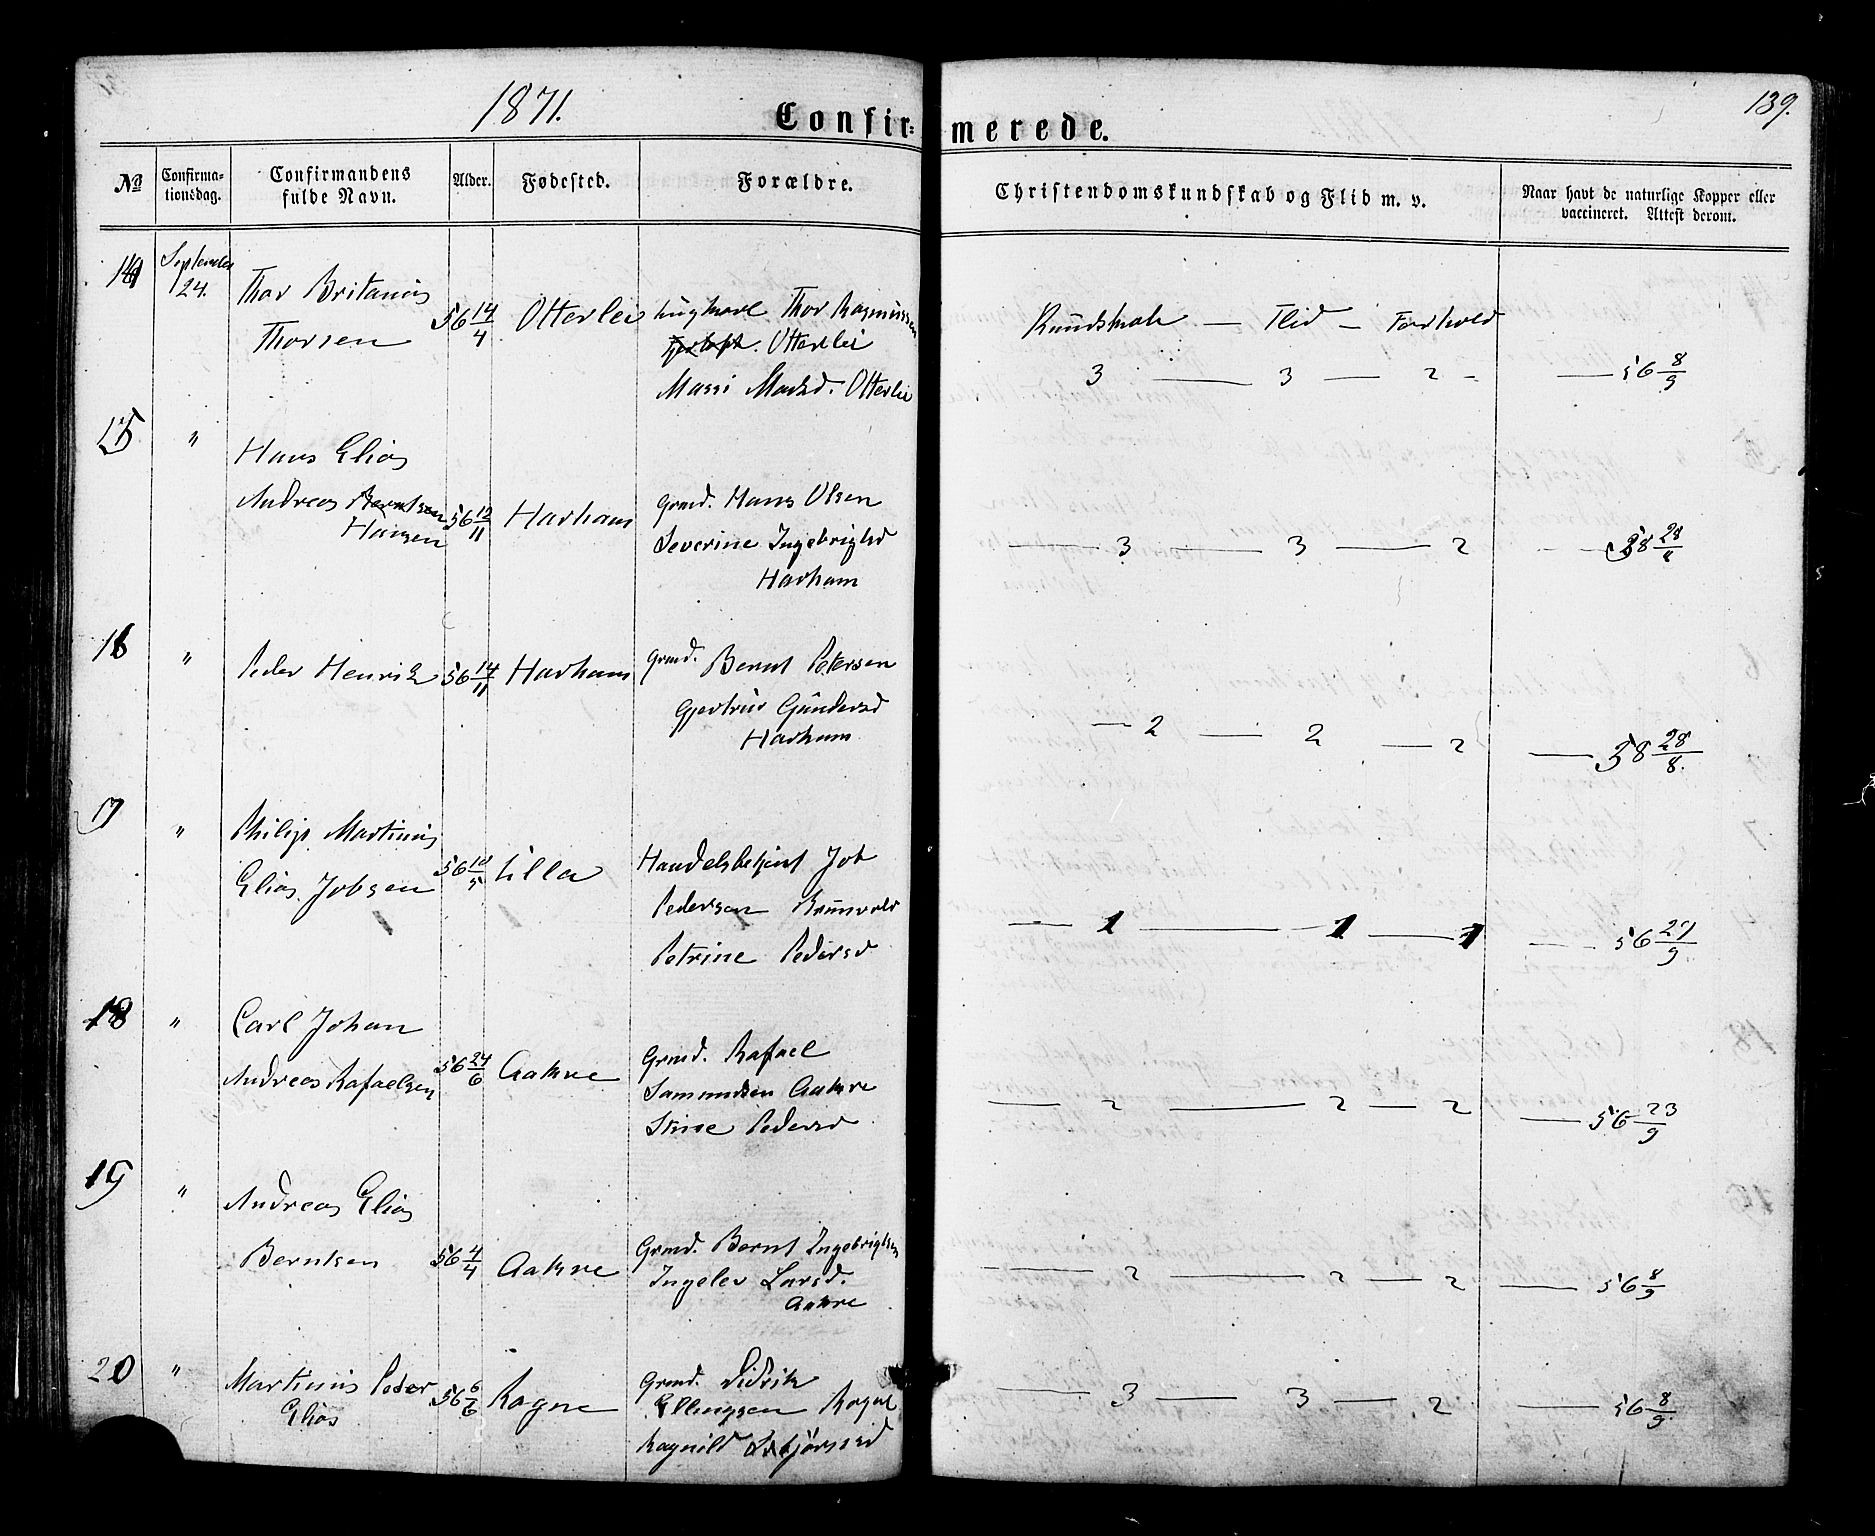 1871.
Confir-merede.
139.
No
Confirma-
tionsdag.
Confirmandens
fulde Navn.
Alder.
Fødested.
Forældre.
Christendomskundskab og Flid m. v.
Naar havt de naturlige Kopper eller
vaccineret. Attest derom.
14
September
24.
Thor Britanius
Thorsen
56 14/4
Otterlei
Thor Rasmussen
Otterlei
Massi Madsd. Otterlei
Kundskab — Flid — Forhold
3 — 3 — 2 — 56 8/9
15
"
Hans Elias
Andreas Berntsen
Hansen
56 12/11
Harham
Grmd. Hans Olsen
Severine Ingebrigtsd
Harham
— 3 — 3 — 2 — 58 28/8
16
"
Peder Henrik
56 14/11
Harham
Grmd. Bernt Petersen
Gjertrud Gundersd
Harham
— 2 — 2 — 2 — 58 28/8.
17
"
Philip Martinus
Elias Jobsen
56 10/5
Ulla
Handelsbetjent Job
Pedersen
Petrine Pedersd
— 1 — 1 — 1 — 56 27/9.
18
"
Carl Johan
Andreas Rafaelsen
56 24/6
Aakre
Grmd. Rafael
Samundsen Aakre
Stine Pedersd
— 2 — 2 — 2 — 56 23/9
19
"
Andreas Elias
Berntsen
56 4/4
Aakre
Grmd. Bernt Ingebrigtsen
Ingelev Larsd.
Aakre
— 2 — 2 — 2 — 56 8/9
20
"
Martinus Peder
Elias
56 6/6
Rogne
Grmd. Didrik
Ellingsen Rogne
Ragnild
— 3 — 3 — 2 — 56 8/9.